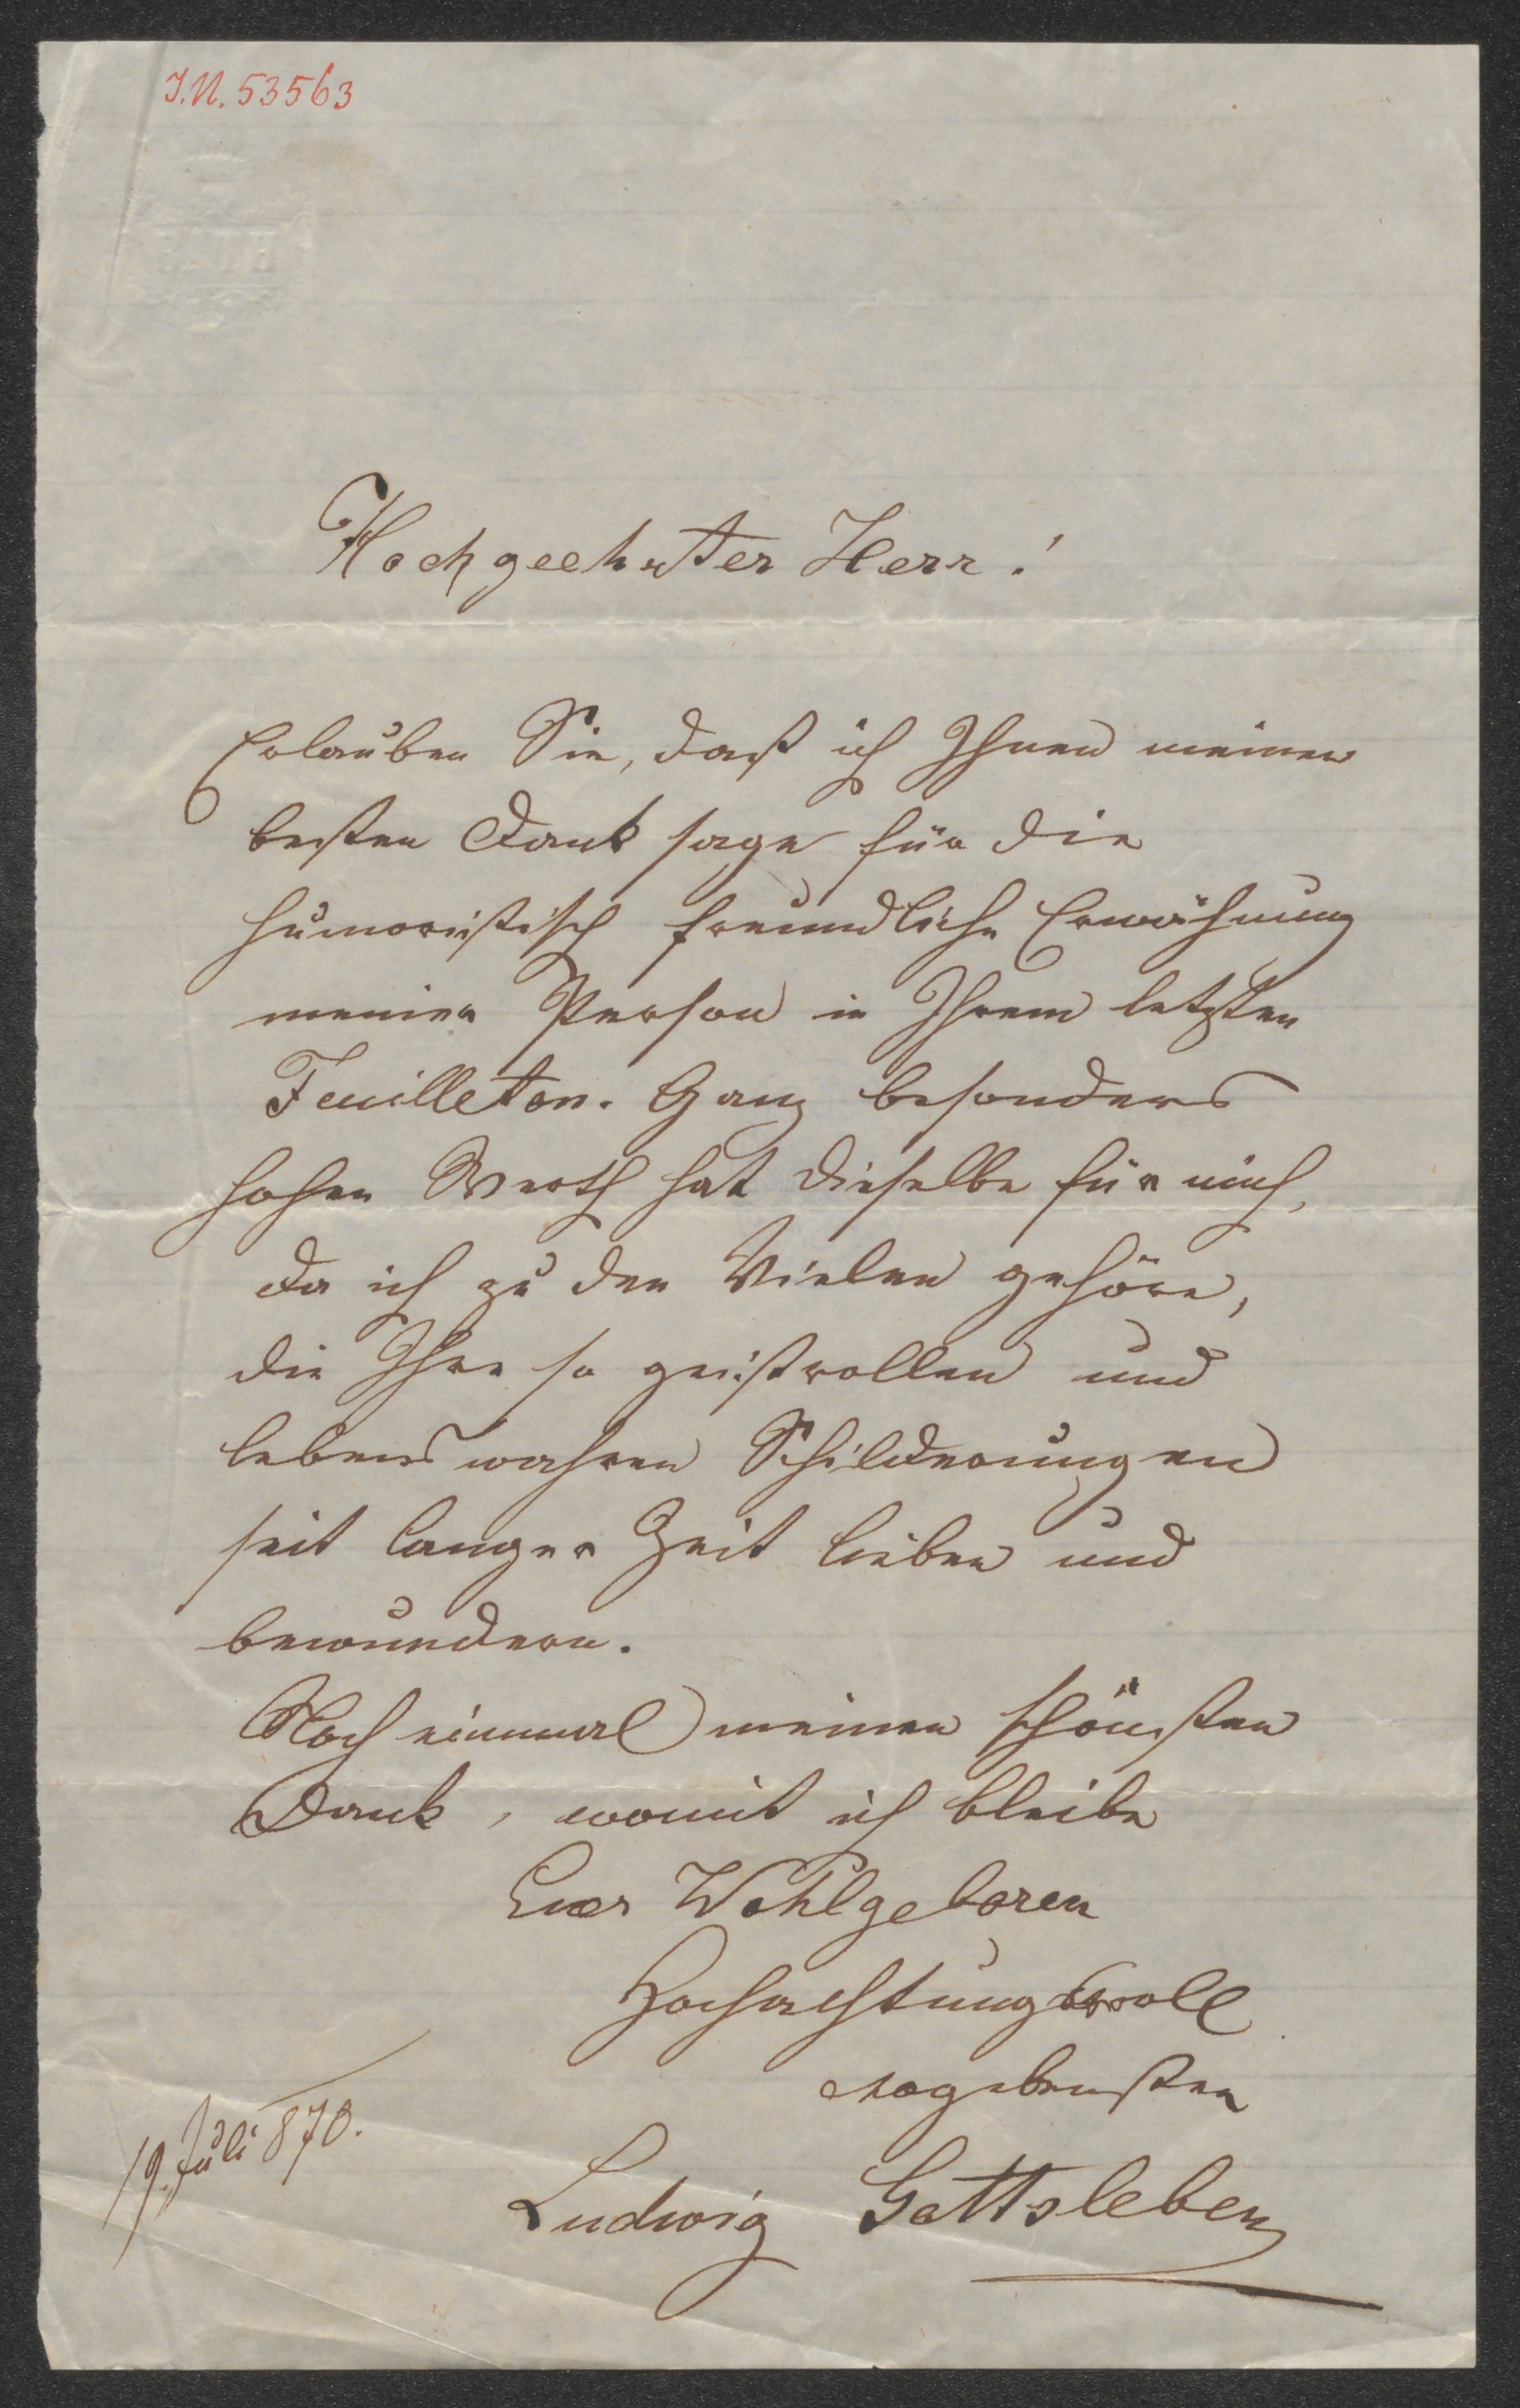 I.N. 53563
Hochgeehrter Herr!
Erlauben Sie, daß ich Ihnen meinen
besten Dank sage für die
humoristisch freundliche Erwähnung
meiner Person in Ihrem letzten
Feuilleton. Ganz besonders
hohen Werth hat dieselbe für mich,
da ich zu den Vielen gehöre,
die Ihre so geistvollen und
lebenswahren Schilderungen
seit langer Zeit lieben und
bewundern.
Noch einmal meinen schönsten
Dank, womit ich bleibe
Euer Wohlgeboren
Hochachtungsvoll
ergebenster
19. Juli 870.
Ludwig Gottsleben